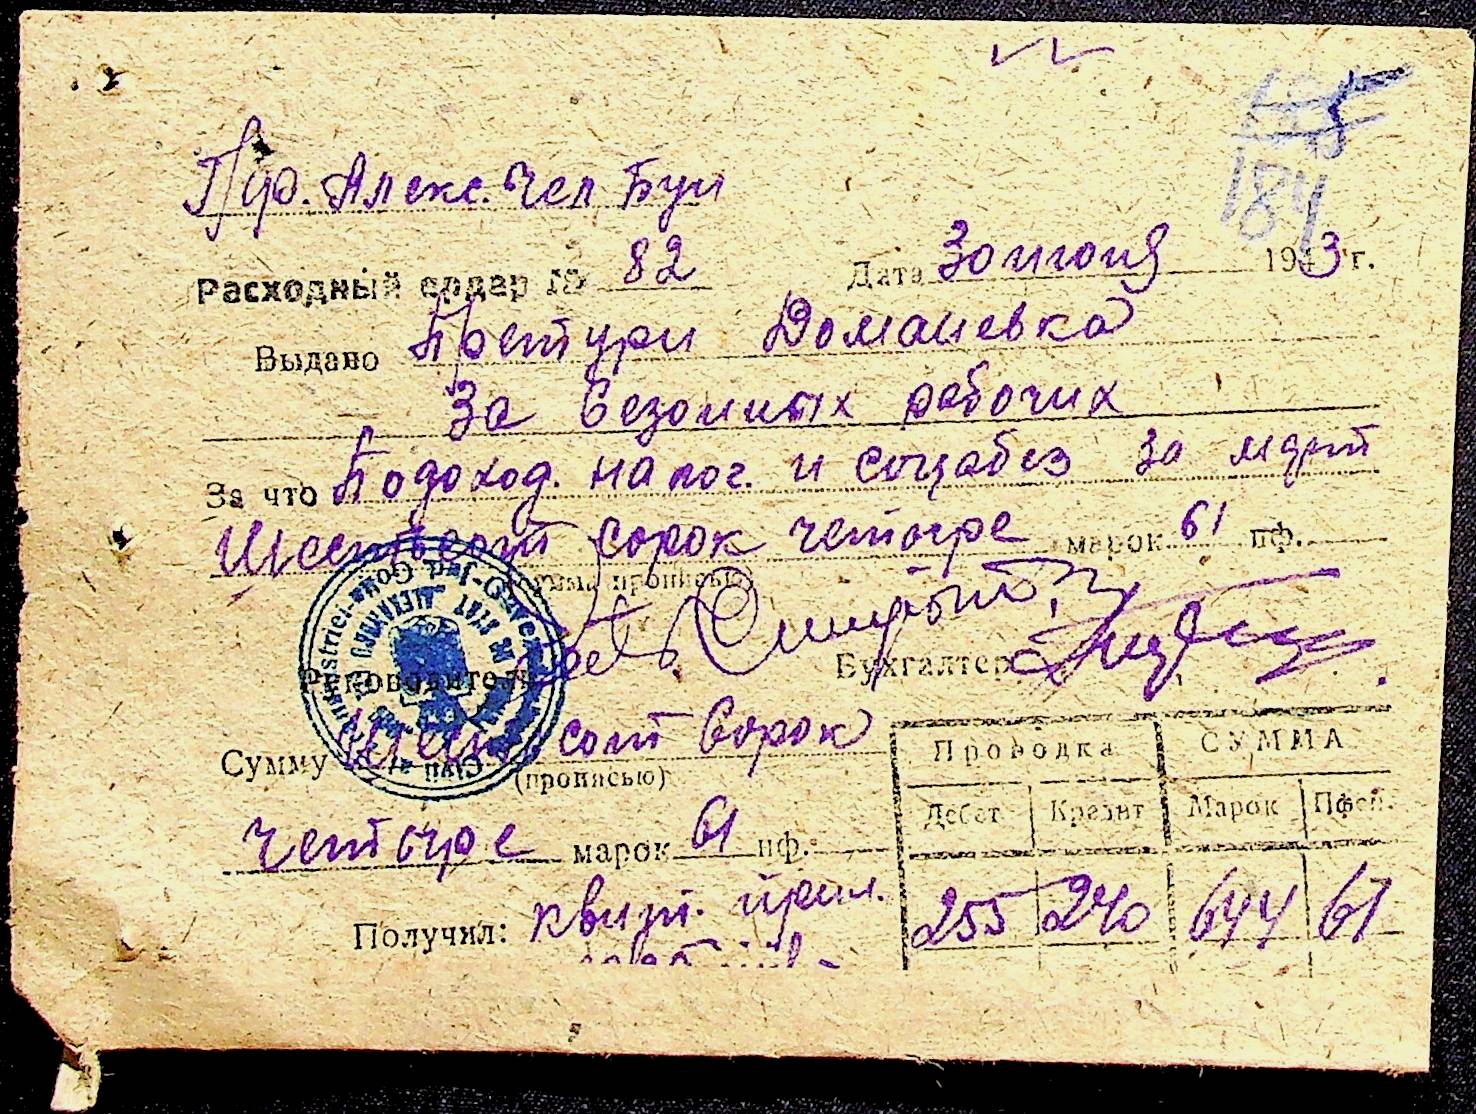 185
184
Алекс. Чел Буи
Расходный ордер № 82 Дата 30 июня 1943 г.
Выдано Претури Доманевка
За сезонных рабочих
За что Подоход. налог. и соцабез за март
Шестьсот сорок четыре марок 61 пф.
(сумма прописью)
Руководитель Бухгалтер
Сумму Шестьсот сорок
(прописью)
четыре марок 61 пф.
Получил: квит. прил.
Проводка СУММА
Дебет Кредит Марок Пфен.
255 240 644 61